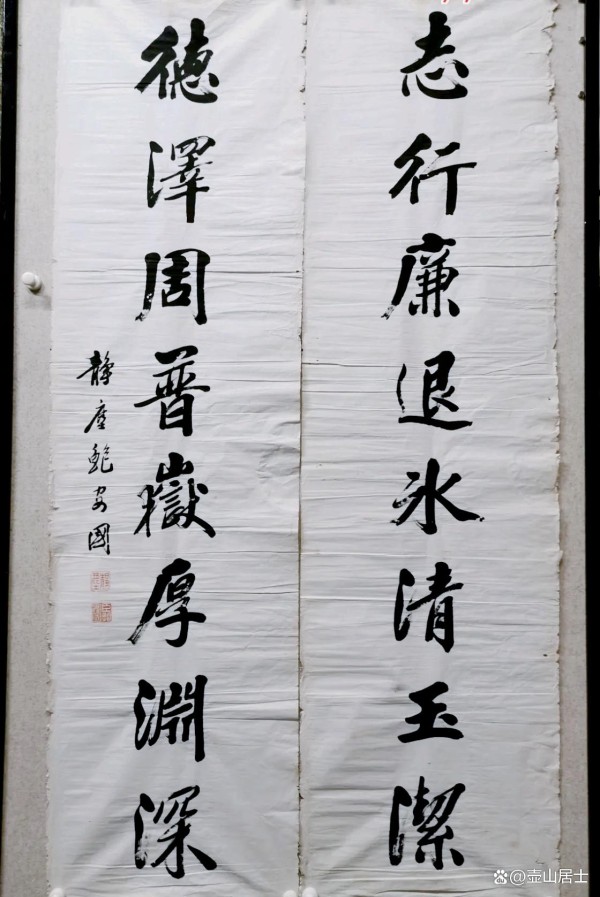 志行廉退冰清玉潔
德澤周普嶽厚淵深
靜廬鮑安國
@壶山居士